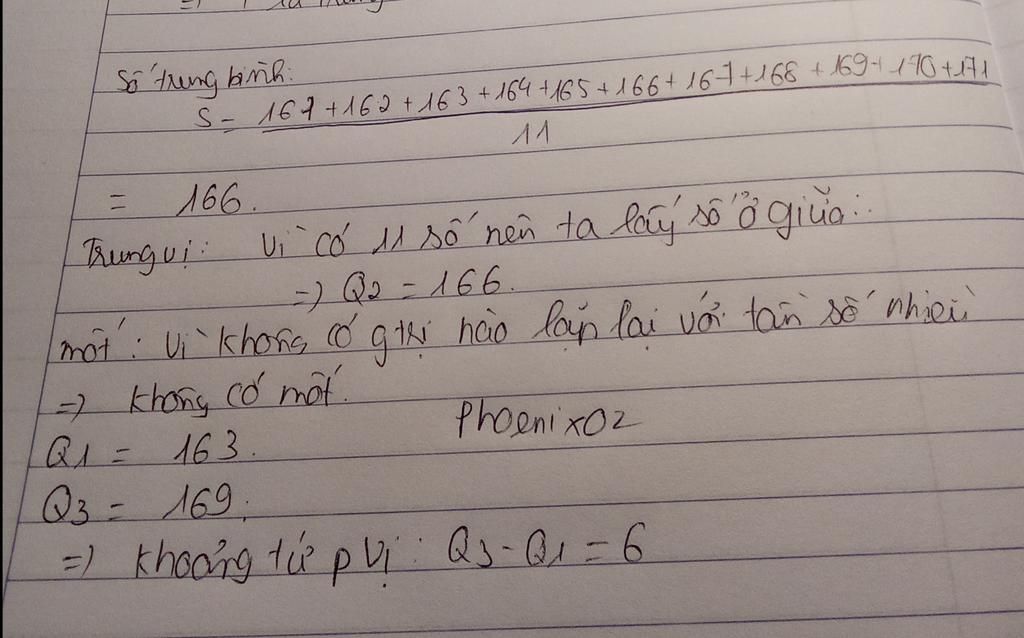 Số trung bình:
S = 161+162+163+164+165+166+167+168+169+170+171
11
= 166.
Trung vị: Vì có 11 số nên ta lấy số ở giữa:
=> Q2 = 166.
mốt: Vì không có gtrị nào lặp lại với tần số nhiều
=> không có mốt.
Phoenix02
Q1 = 163.
Q3 = 169.
=> khoảng tứ pvị: Q3-Q1=6